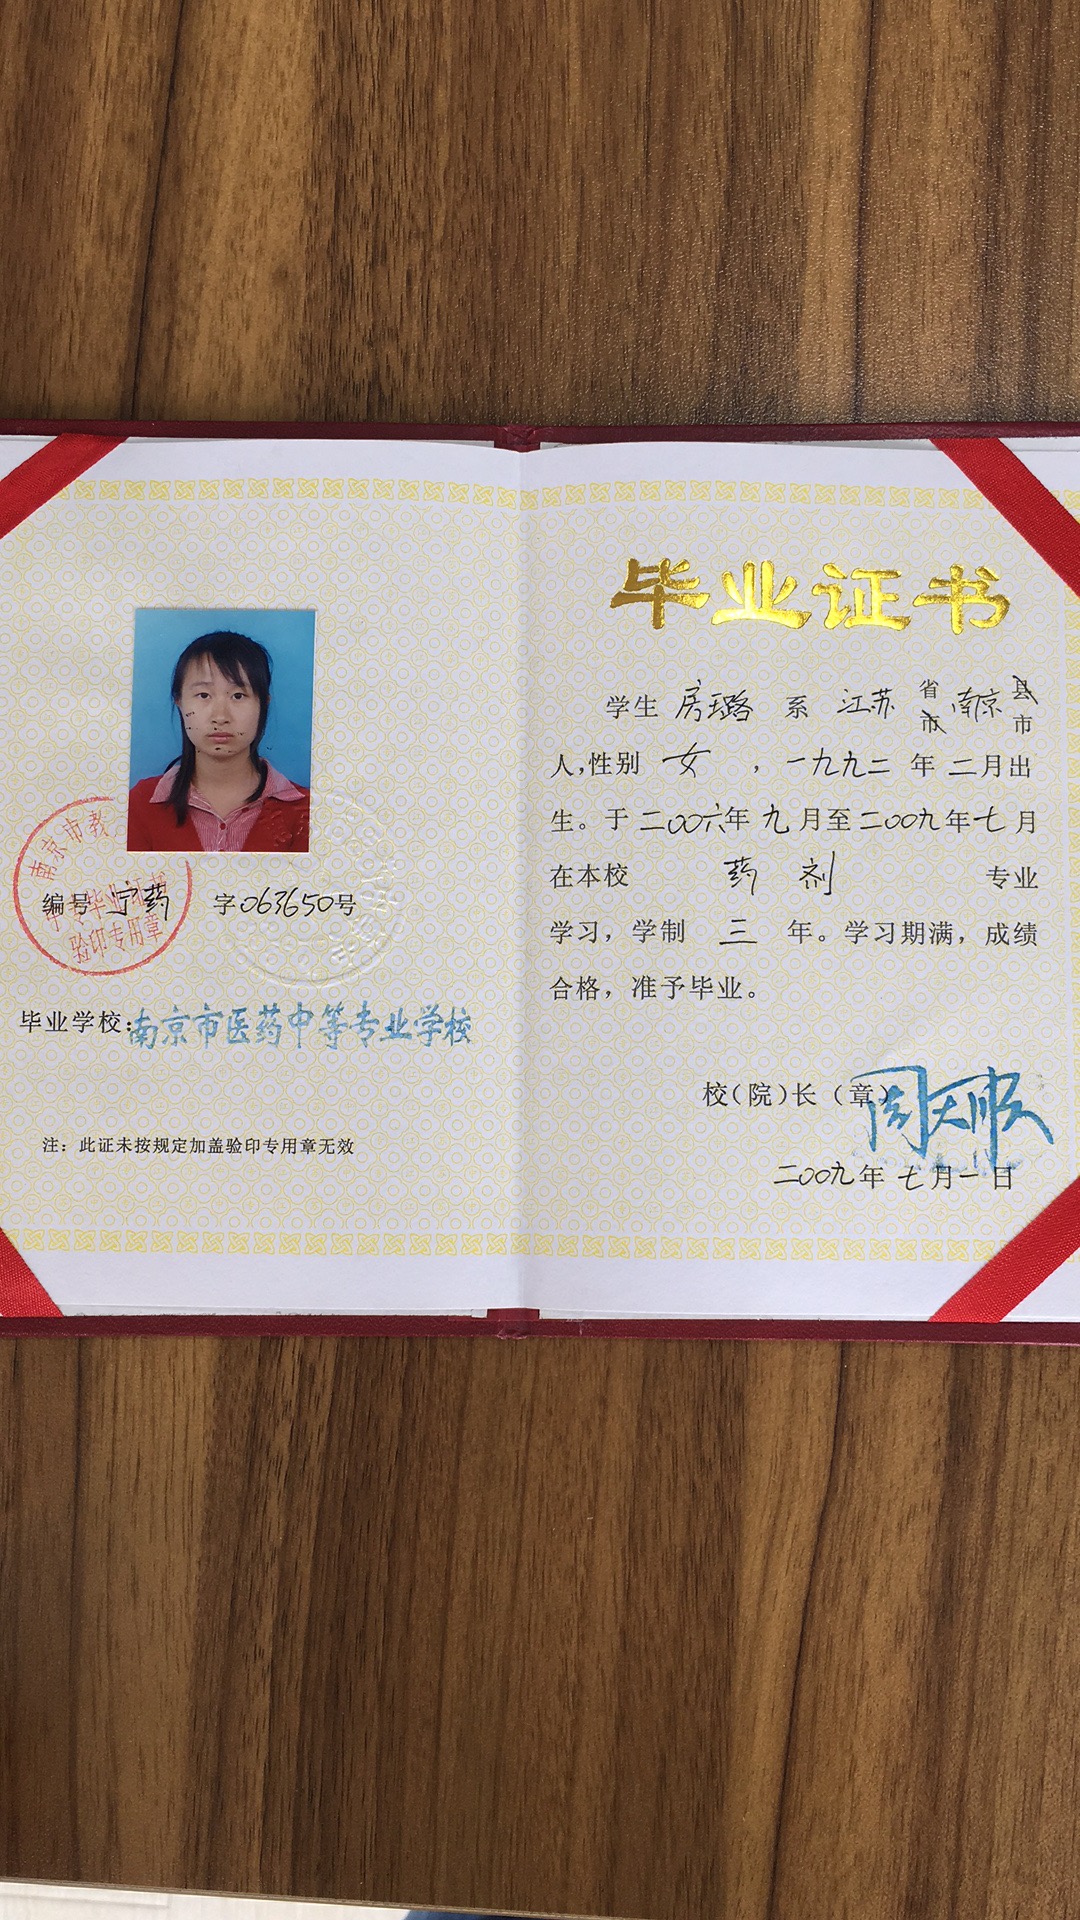 南京市教
中专毕业证书
验印专用章
编号 宁药 字063650号
毕业学校:南京市医药中等专业学校
注：此证未按规定加盖验印专用章无效
毕业证书
学生 房璐 系 江苏 省市 南京 县市
人,性别 女 ，一九九二 年 二月出
生。于二00六年九月至二00九年七月
在本校 药剂 专业
学习，学制 三 年。学习期满，成绩
合格，准予毕业。
校(院)长（章） 周天顺
二00九年七月一日